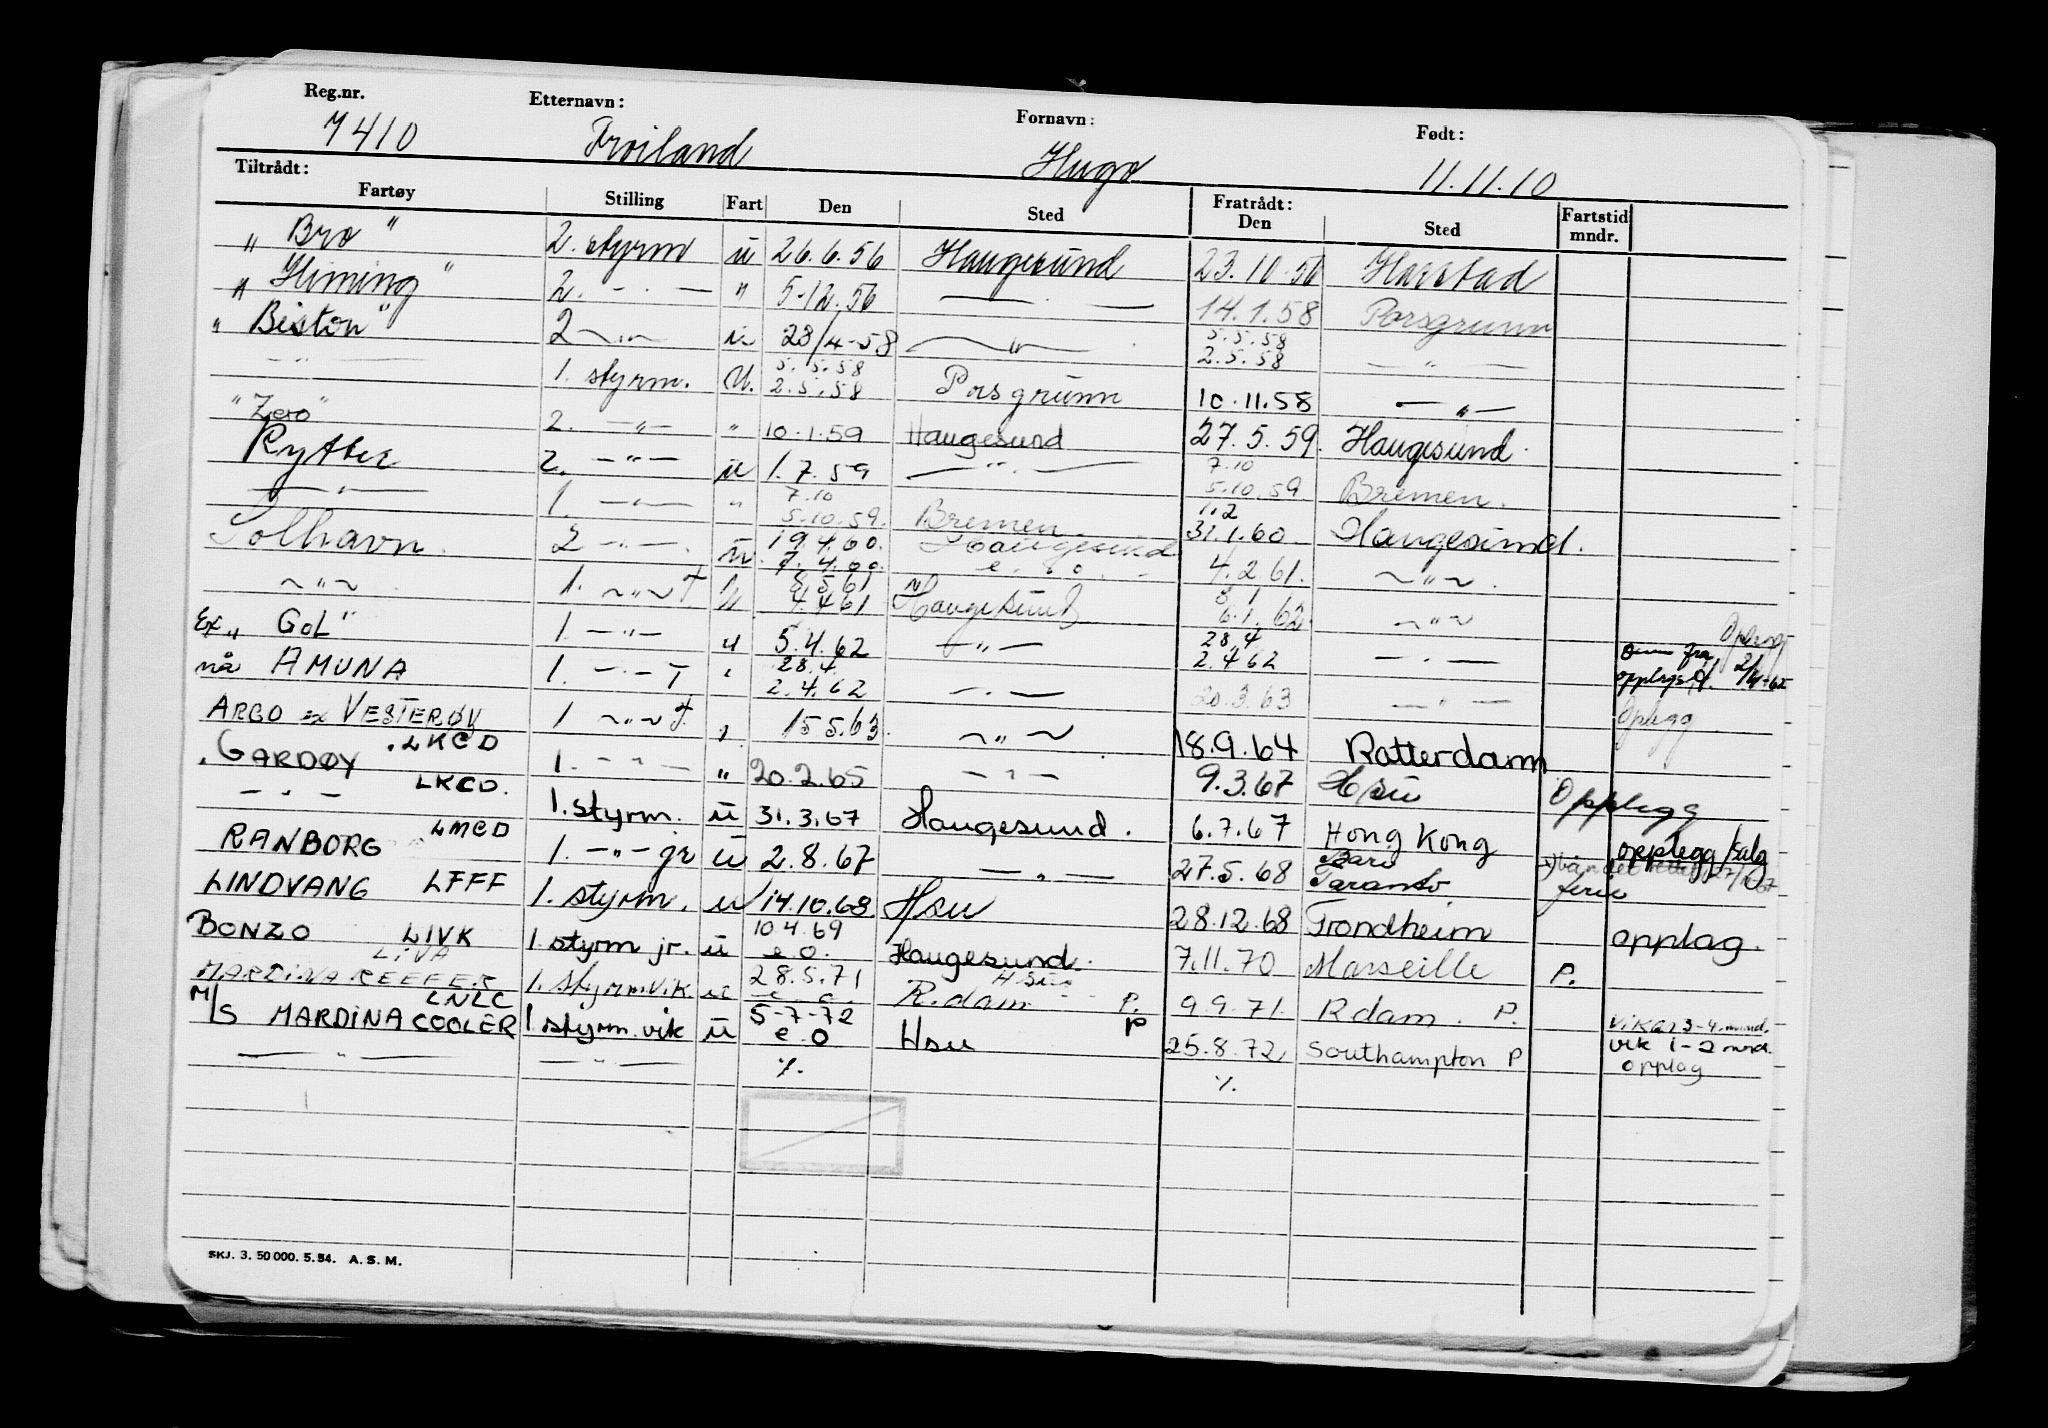 Reg.nr. Etternavn: Fornavn: Født:
7410 Frøiland Hugo 11.11.10
Tiltrådt: Fratrådt:
Fartøy Stilling Fart Den Sted Den Sted Fartstid mndr.
" Bro " 2. styrm u 26.6.56 Haugesund 23.10.56 Harstad
" Heming " 2. - . - " 5.12.56 - . - 14.1.58 Porsgrunn
" Beston " 2 - " - u 23/4-58 - " - 5.5.58 2.5.58 - " -
- " - 1. styrm. U. 5.5.58 2.5.58 Porsgrunn 10.11.58 - " -
" Zero " 2. - " - " 10.1.59 Haugesund 27.5.59. Haugesund.
Rytter 2. - " - u 1.7.59 - " - 7.10 5.10.59 Bremen.
- " - 1. - " - " 7.10 5.10.59. Bremen 1.2 31.1.60 Haugesund.
Solhavn. 2 - " -. u. 19.4.60. 7.4.60. Haugesund e.o. 4.2.61. - " - .
- " - . 1. - " - T u 8.5.61 4.4.61 Haugesund 8.1 6.1.62 - " -
Ex " GOL " 1. - " - u 5.4.62 - " - 28.4 2.4.62 - . - fra opplegg 2/4-62 Oplegg
nå AMUNA 1. - . - T " 28.4. 2.4.62 - . - 20.3.63 - " - Oplegg
ARGO ex VESTERØY 1 - " - T " 15.5.63. - " - 18.9.64 Rotterdam
. GARDØY . LKCD 1. - " - " 20.2.65 - " - 9.3.67 Hsu Opplegg
- . - LKCD. 1. styrm. u 31.3.67 Haugesund. 6.7.67 Hong Kong opplegg/salg
RANBORG LMCD 1. - " - jr u 2.8.67 - " - 27.5.68 Bari Taranto ferie
LINDVANG LFFF 1. styrm. u 14.10.68 Hsu 28.12.68 Trondheim opplag.
BONZO LIVK 1. styrm jr. u 10.4.69 e o. Haugesund. 7.11.70 Marseille P.
MARDINA REEFER LIVA 1. styrm.vik. u 28.5.71 e o. Hsu R.dam P. 9.9.71. Rdam. P. vikar 3-4. mnd.
M/S MARDINA COOLER LNLC 1. styrm. vik u 5-7-72 e o Hsu P 25.8.72 Southampton P vik 1-2 mnd.
- " - - " - %. %. opplag
SKJ. 3. 50 000. 5.54. A. S. M.